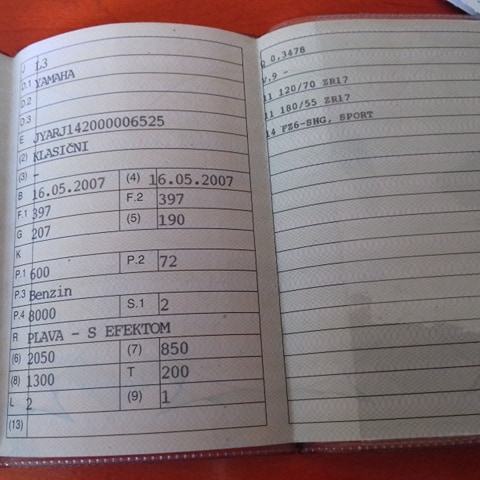 J L3
D.1 YAMAHA
D.2
D.3
E JYARJ142000006525
(2) KLASIČNI
(3) -
B 16.05.2007 (4) 16.05.2007
F.1 397 F.2 397
G 207 (5) 190
K
P.1 600 P.2 72
P.3 Benzin
P.4 8000 S.1 2
R PLAVA - S EFEKTOM
(6) 2050 (7) 850
(8) 1300 T 200
L 2 (9) 1
(13)
0,3478
.9 -
11 120/70 ZR17
11 180/55 ZR17
14 FZ6-SHG, SPORT